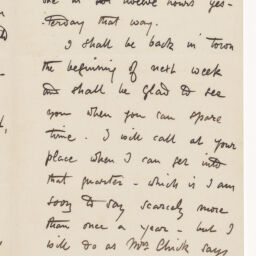 one in twelve hours yes-
terday that way.
I shall be back in town
the beginning of next week
shall be glad to see
you when you can spare
time. I will call at your
place when I can get into
that quarter - which is I am
sorry to say scarcely more
than once a year - but I
will do as Mrs Chick says